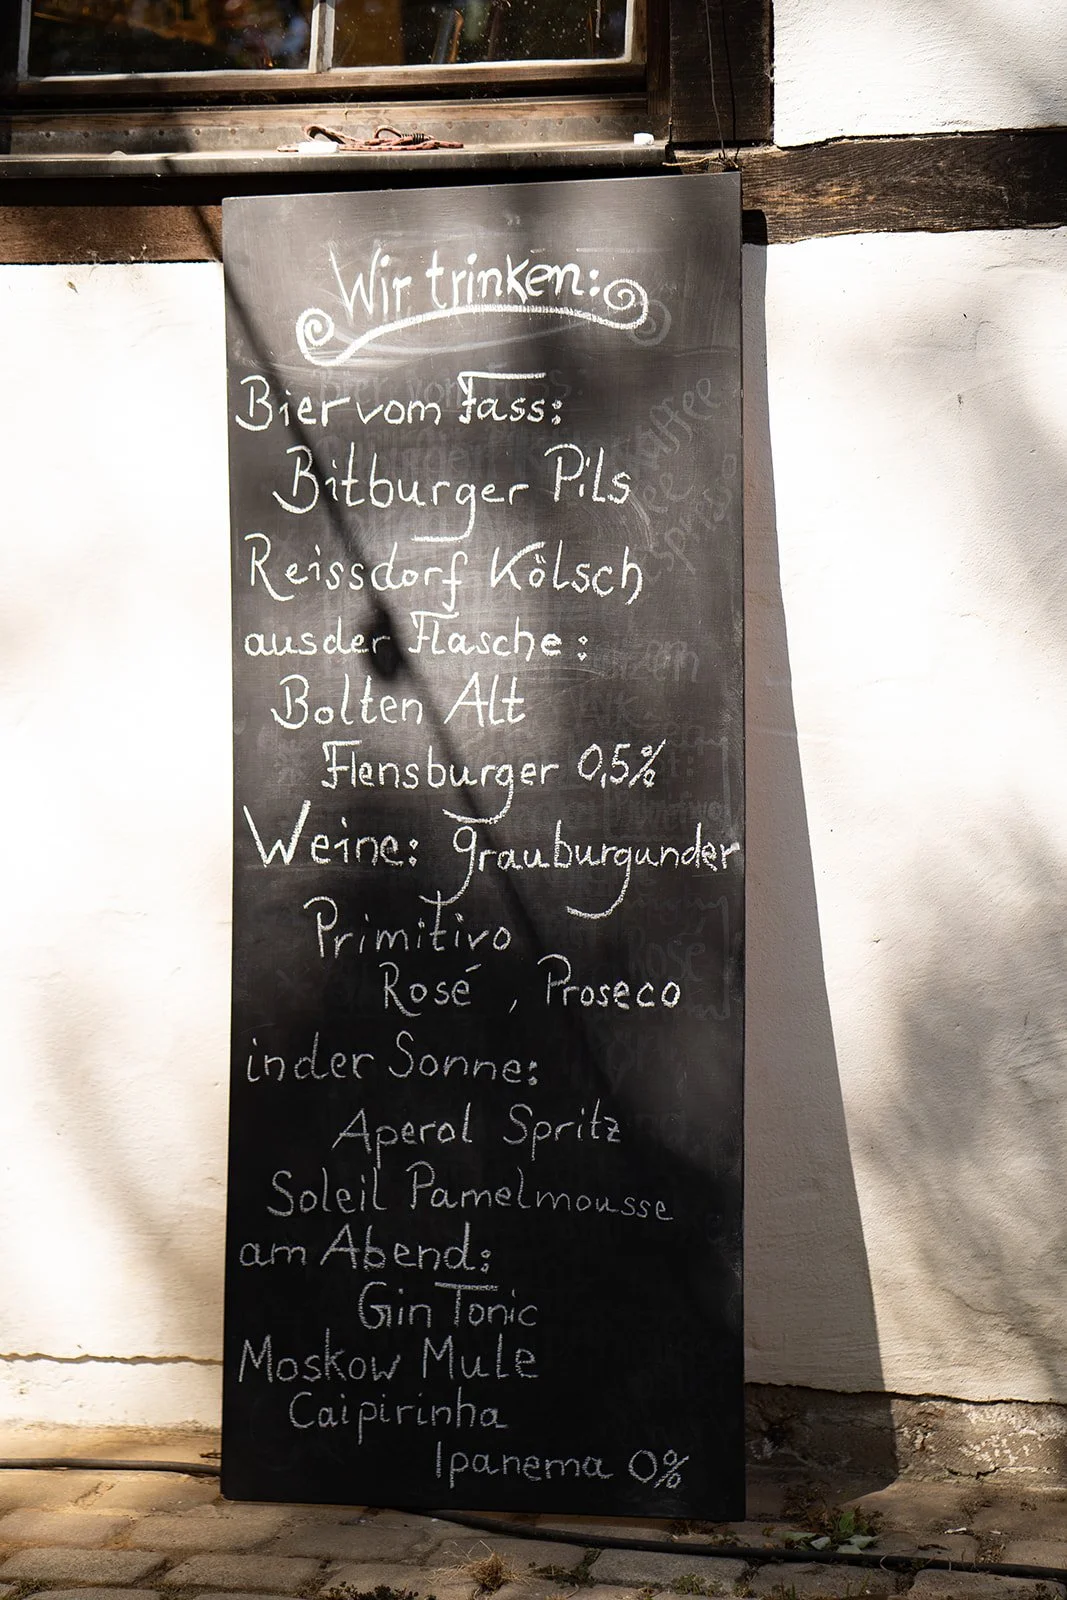 Wir trinken:
Bier vom Fass:
Bitburger Pils
Reissdorf Kölsch
aus der Flasche:
Bolten Alt
Flensburger 0,5%
Weine: Grauburgunder
Primitivo
Rosé , Proseco
in der Sonne:
Aperol Spritz
Soleil Pamelmousse
am Abend:
Gin Tonic
Moskow Mule
Caipirinha
Ipanema 0%